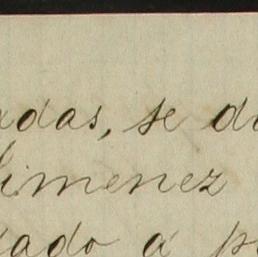 adas, se d
Jimenez
iado á p